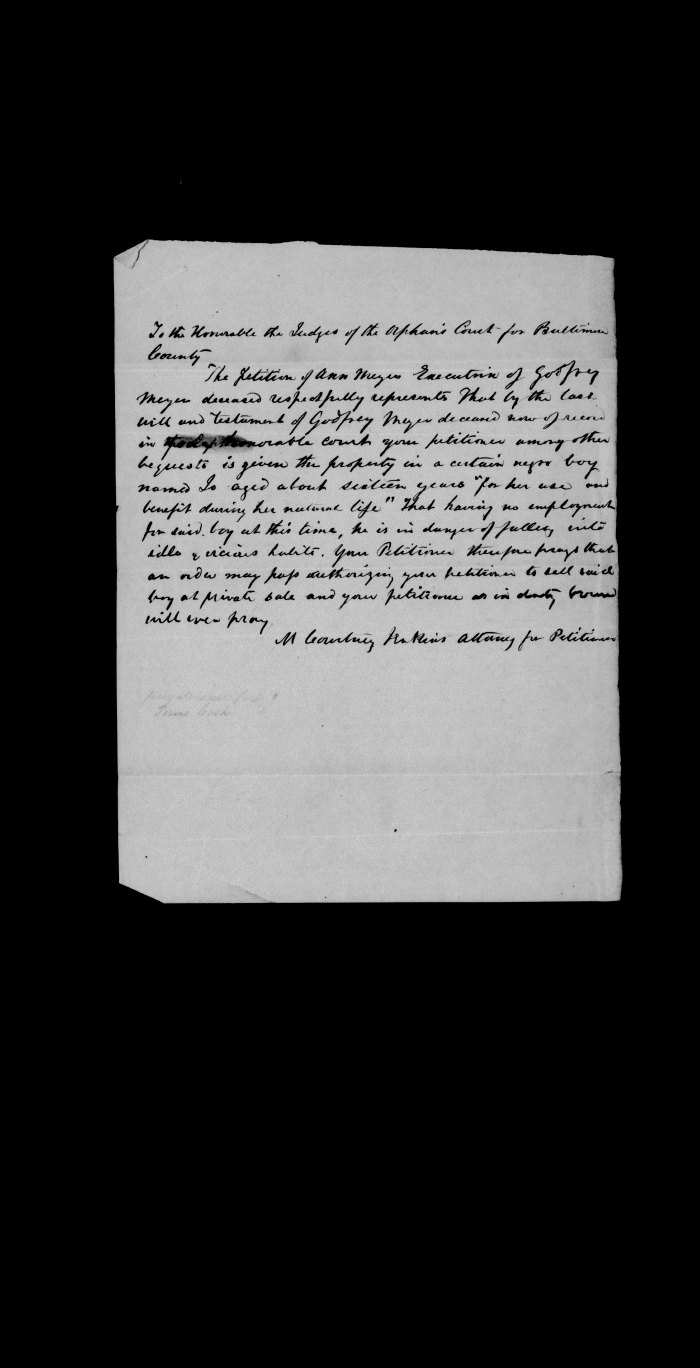 To the Honorable the Judges of the Orphan's Court for Baltimore
County
The Petition of Ann Meyer Executrix of Godfrey
Meyer deceased respectfully represents That by the last
will and testament of Godfrey Meyer deceased now of record
in honorable court your petitioner among other
bequests is given the property in a certain negro boy
named Jo aged about sixteen years "for her use and
benefit during her natural life" That having no employment
for said boy at this time, he is in danger of falling into
idle & vicious habits. Your Petitioner therefore prays that
an order may pass authorizing your petitioner to sell said
boy at private sale and your petitioner as in duty bound
will ever pray
M Courtney Jenkins Attorney for Petitioner
private sale for
Terms Cash